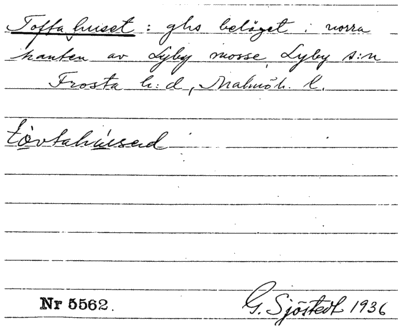 Toftahuset : ghs beläget i norra
kanten av Lyby mosse, Lyby s:n
Frosta h:d, Malmöh. l.
tòvtahúsed
Nr 5562.
G. Sjöstedt 1936